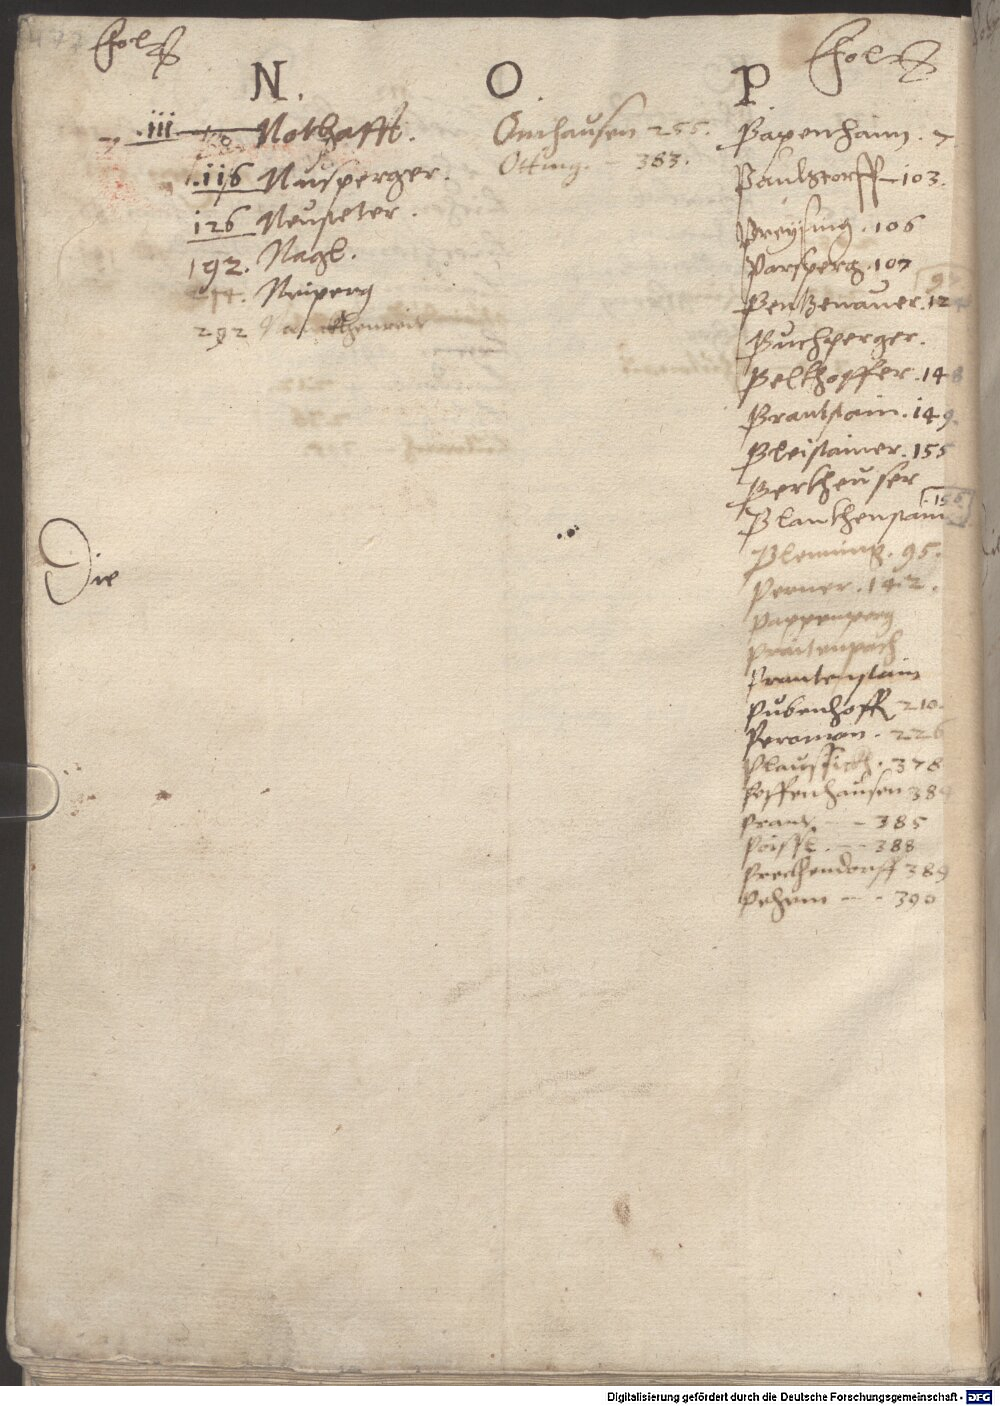 Fol
N.
.111. Nothafft.
.116 Nusperger.
126 Neusteter.
192. Nagl.
Neiperg
292
Die
O
Onhausen 255.
Otting. – 383.
Fol
P
Papenhaim. 7
Paulstorff – 103.
Preysing. 106
Parsperg. 107
Pentzenauer. 124
Puchperger.
Pelkhoffer. 148
Prantstain. 149.
Pleistainer. 155
Perkheuser
Planckhenstain 156
Pleming. 95.
Perner. 142.
Pappenperg
Praitenpach
Prantenstain
Pubenhoff 210.
Peroman. 226
378
Peffenhausen 384
Prant – – 385
Poissl. – – 388
Preckendorff 389
– – 390
Digitalisierung gefördert durch die Deutsche Forschungsgemeinschaft - DFG